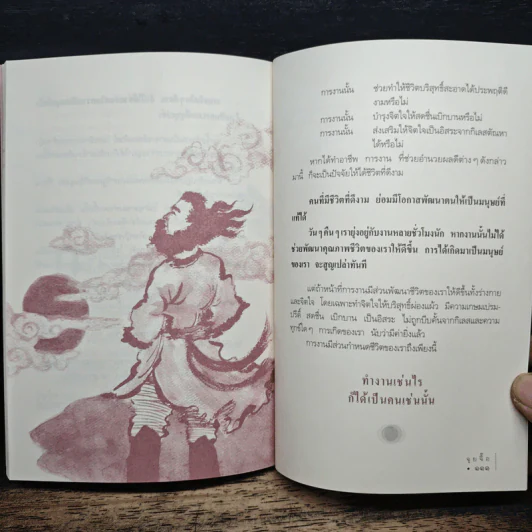 การงานนั้น ช่วยทำให้ชีวิตบริสุทธิ์สะอาดได้ประพฤติดี
งามหรือไม่
การงานนั้น บำรุงจิตใจให้สดชื่นเบิกบานหรือไม่
การงานนั้น ส่งเสริมให้จิตใจเป็นอิสระจากกิเลสตัณหา
ได้หรือไม่
หากได้ทำอาชีพ การงาน ที่ช่วยอำนวยผลดีต่างๆ ดังกล่าว
มานี้ ก็จะเป็นปัจจัยให้ได้ชีวิตที่ดีงาม
คนที่มีชีวิตที่ดีงาม ย่อมมีโอกาสพัฒนาตนให้เป็นมนุษย์ที่
แท้ได้
วันๆ คืนๆ เรายุ่งอยู่กับงานหลายชั่วโมงนัก หากงานนั้นไม่ได้
ช่วยพัฒนาคุณภาพชีวิตของเราให้ดีขึ้น การได้เกิดมาเป็นมนุษย์
ของเรา จะสูญเปล่าทันที
แต่ถ้าหน้าที่การงานมีส่วนพัฒนาชีวิตของเราให้ดีขึ้นทั้งร่างกาย
และจิตใจ โดยเฉพาะทำจิตใจให้บริสุทธิ์ผ่องแผ้ว มีความเกษมเปรม-
ปรีดิ์ สดชื่น เบิกบาน เป็นอิสระ ไม่ถูกบีบคั้นจากกิเลสและความ
ทุกข์ใดๆ การเกิดของเรา นับว่ามีค่ายิ่งแล้ว
การงานมีส่วนกำหนดชีวิตของเราถึงเพียงนี้
ทำงานเช่นไร
ก็ได้เป็นคนเช่นนั้น
• ๑๑๑